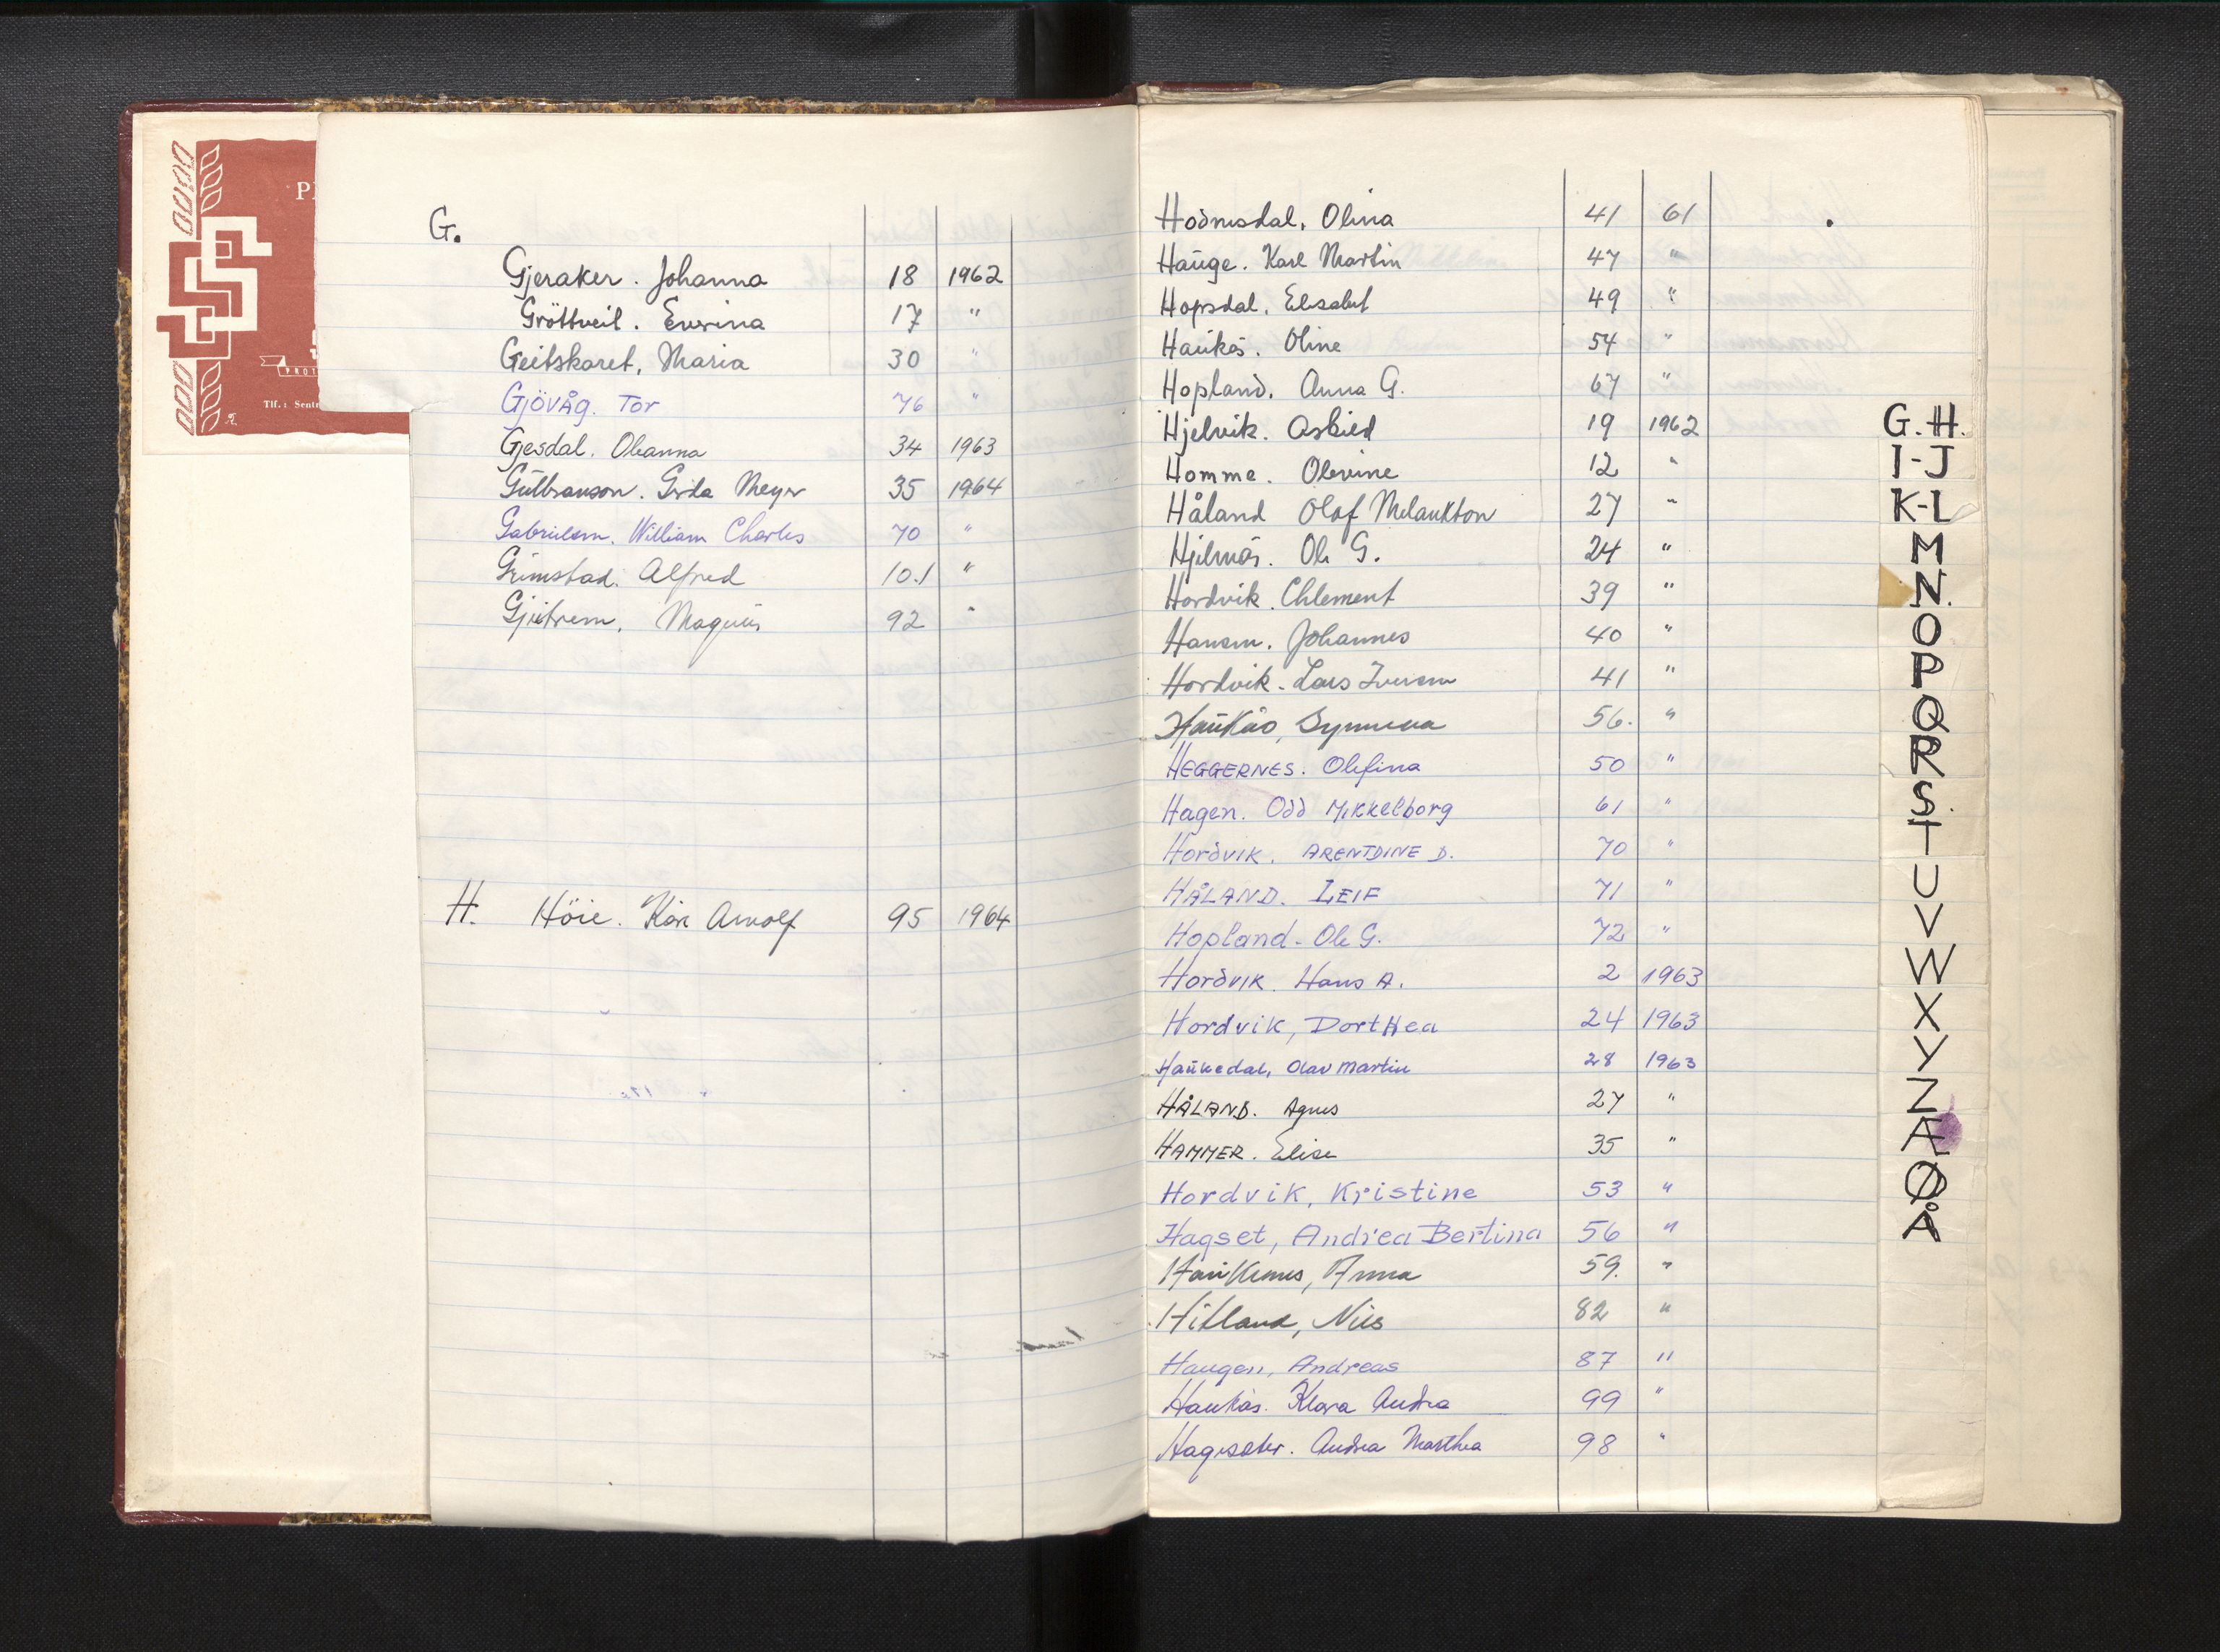 G.
Gjeraker. Johanna 18 1962
Gröttveit. 17 "
Geitskaret, Maria 30 "
GJÖVÅg. Tor 76 "
Gjesdal. Oleanna 34 1963
Gulbranson. Gerda Meyer 35 1964
Gabrielsen. William Charles 70 "
Grimstad. Alfred 10.1 "
Gjeitrem, Magnus 92 "
H. Höie. Kåre Arnolf 95 1964
P
Tlf.: Sentr
Hodnesdal, Olina 41 61
Hauge. Karl Martin 47 "
Hopsdal, Elisabet 49 "
Haukås. Oline 54 "
Hopland, Anna G. 67 "
Hjelvik. 19 1962
Homme. Olevine 12 "
Håland Olaf Melankton 27 "
Hjelmås. Ole G. 24 "
Hordvik. Chlement 39 "
Hansen. Johannes 40 "
Hordvik. Lars Iversen 41 "
Haukås, Synneva 56. "
HEGGERNES. Olefina 50 "
Hagen. Odd Mikkelborg 61 "
Hordvik. ARENTDINE D. 70 "
HÅLAND. LEIF 71 "
Hopland. Ole G. 72 "
Hordvik. Hans A. 2 1963
Hordvik, Dorthea 24 1963
Haukedal, Olav Martin 28 1963
HÅLAND. Agnes 27 "
HAMMER. Elise 35 "
Hordvik, Kristine 53 "
Hagset, Andrea Bertina 56 "
Haukenes, Anna 59. "
Hitland, Nils 82 "
Haugen, Andreas 87 "
Haukås. Klara Andrea 99 "
Hagesæter. Andrea Marthea 98 "
G.H.
I-J
K-L
M
N.
O
P
Q
R
S.
T
U
V
W
X
Y
Z
Æ
Ø
Å